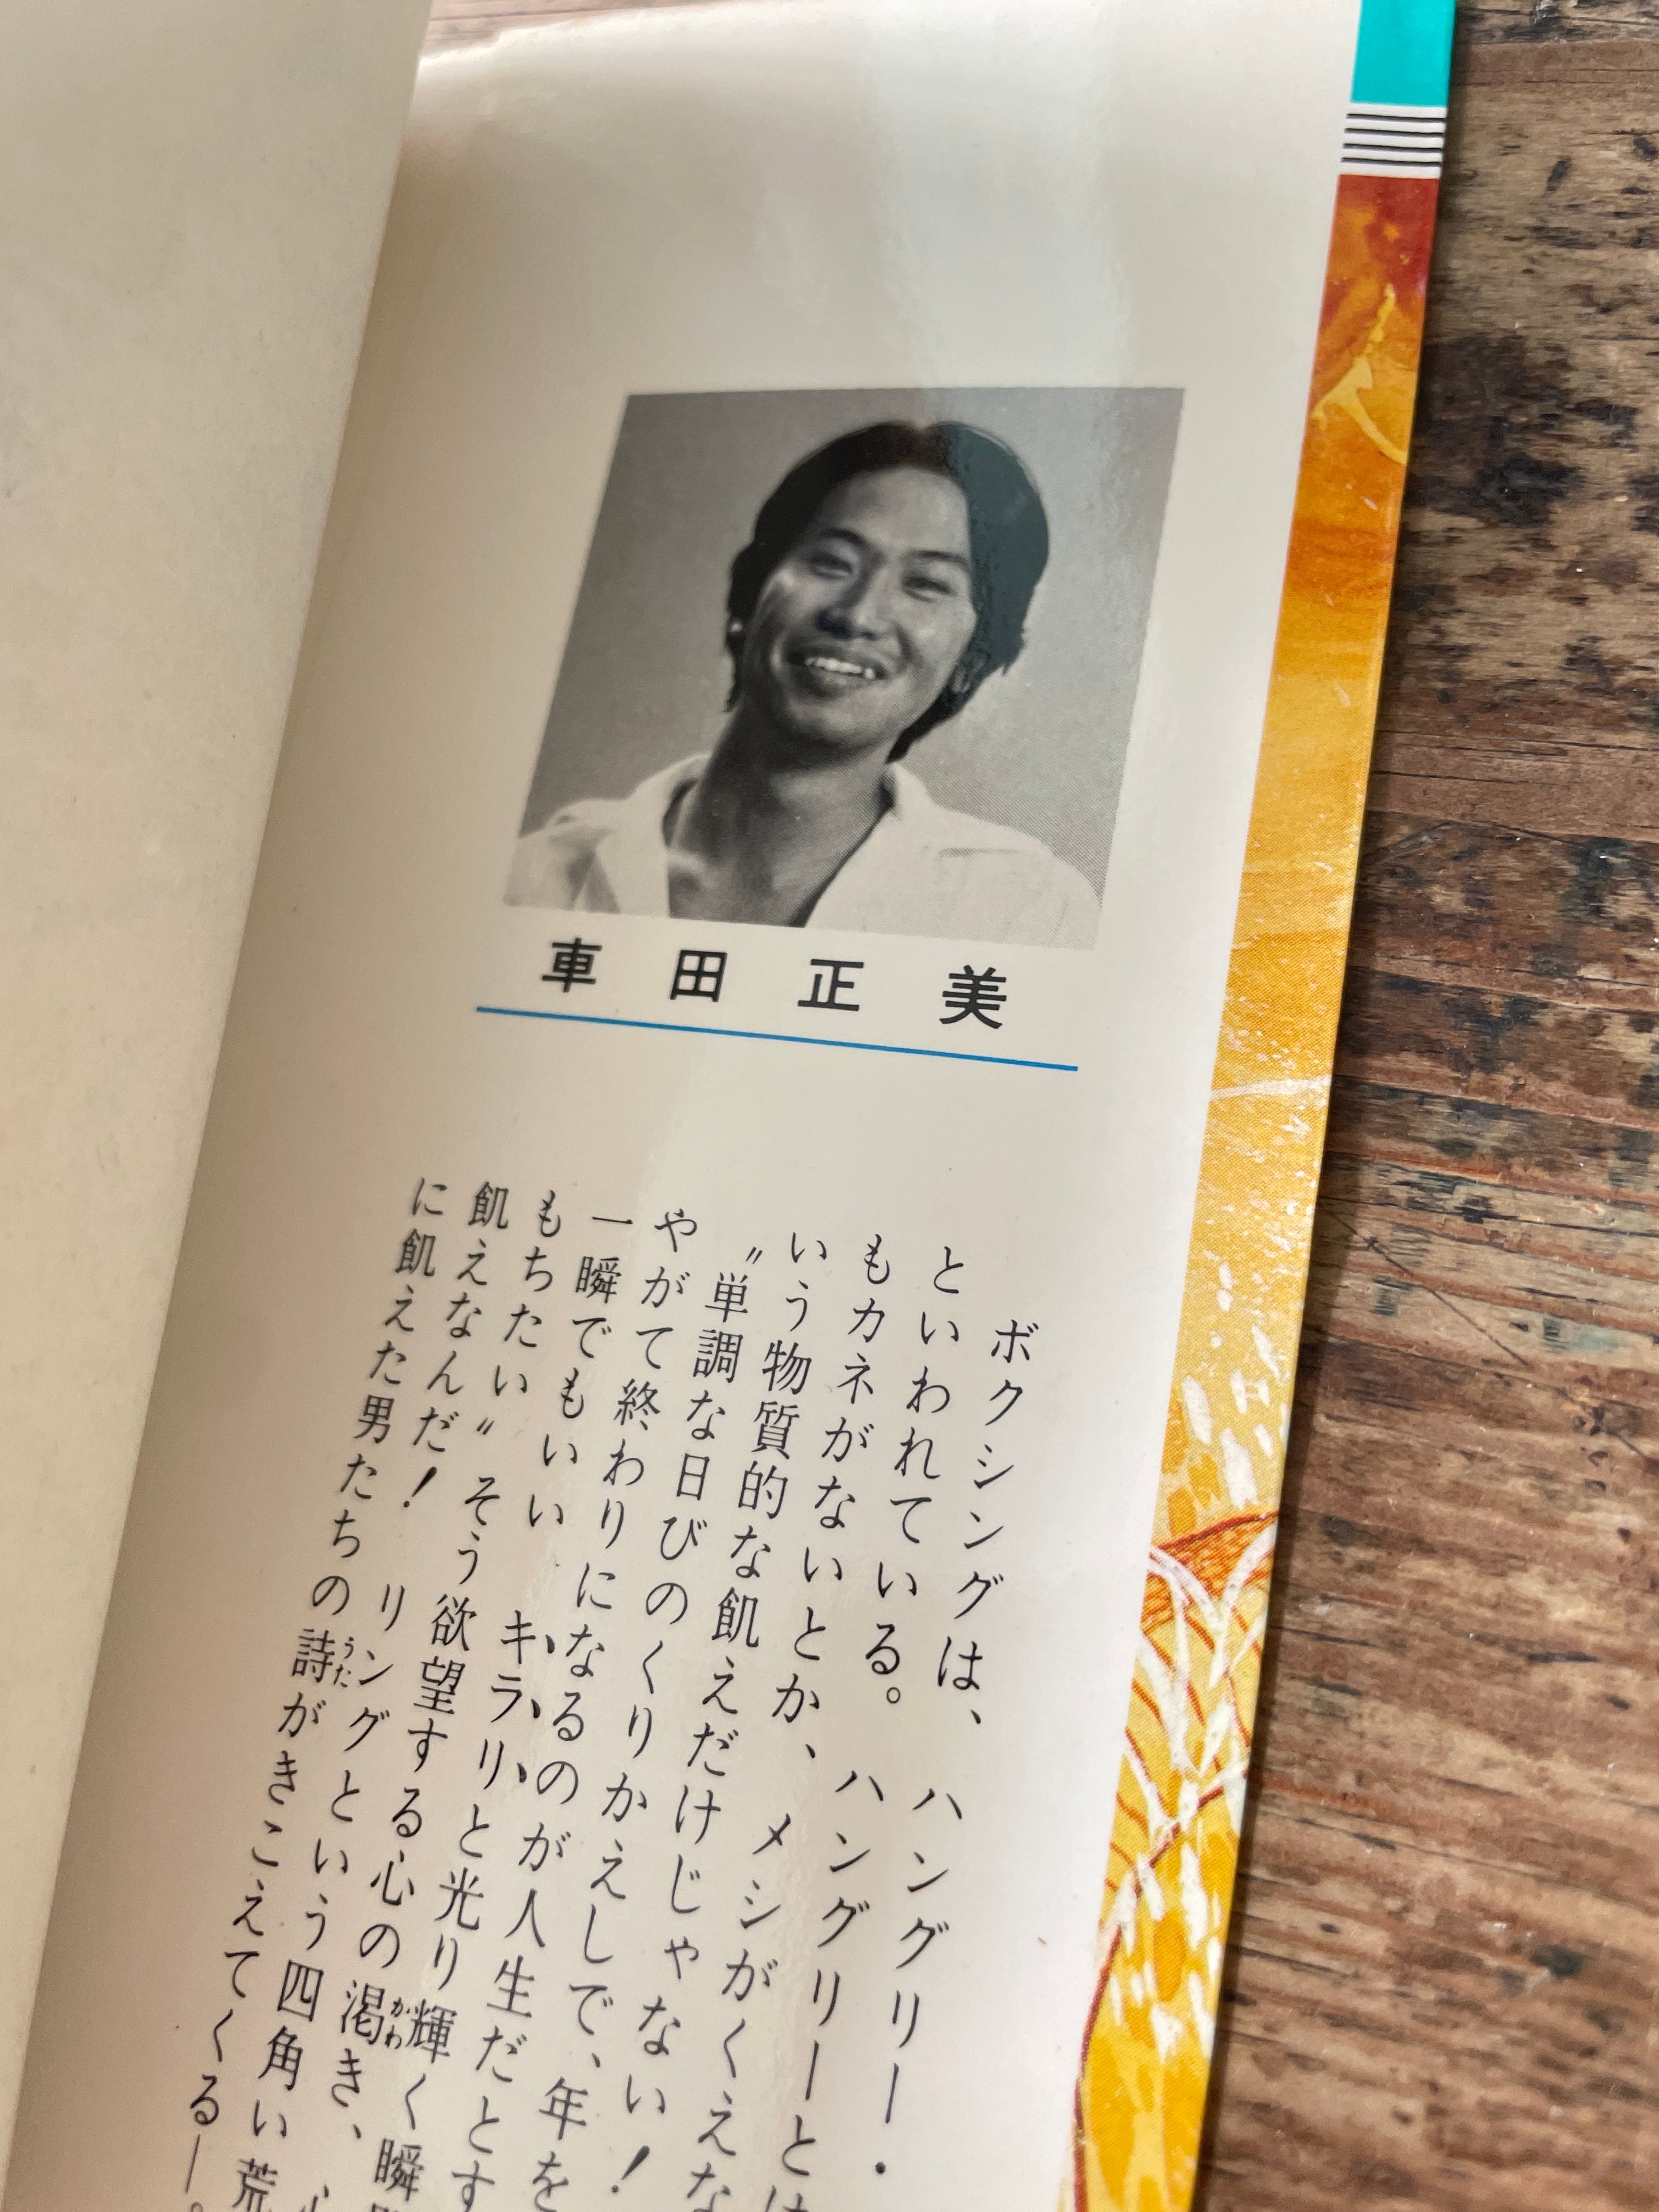 車田正美
ボクシングは、ハングリー・
といわれている。ハングリーとは
もカネがないとか、メシがくえな
いう物質的な飢えだけじゃない！
〝単調な日びのくりかえしで、年を
やがて終わりになるのが人生だとす
一瞬でもいい キラリと光り輝く瞬
もちたい〟そう欲望する心の渇き、
飢えなんだ！ リングという四角い荒
に飢えた男たちの詩がきこえてくる―。
うた
かわ